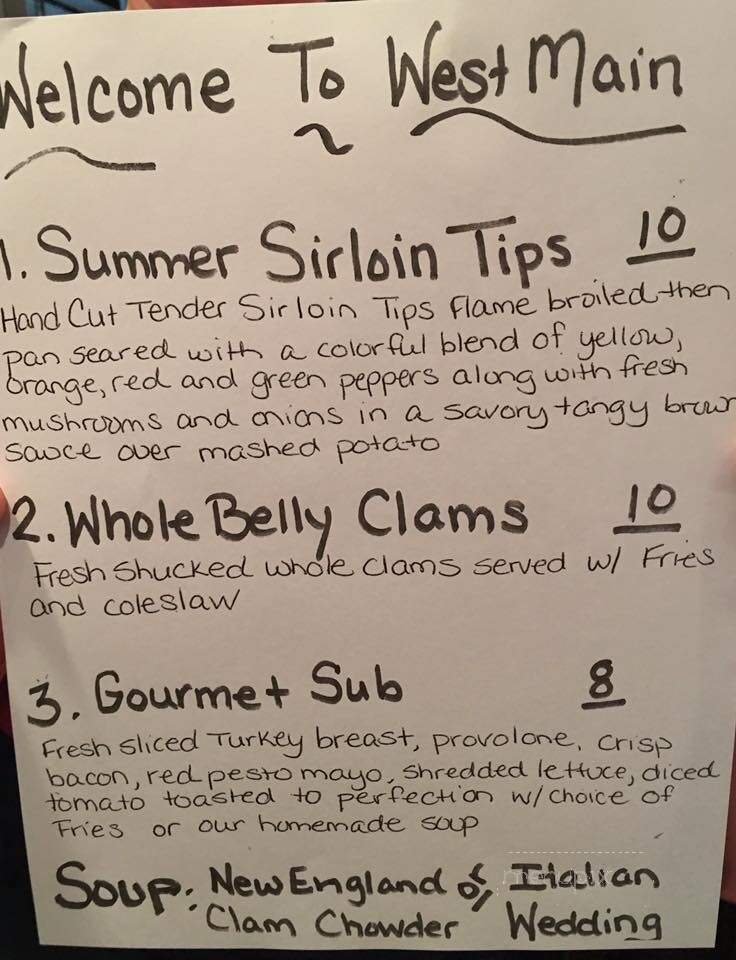 Welcome To West Main
1. Summer Sirloin Tips 10
Hand Cut Tender Sirloin Tips flame broiled then
pan seared with a colorful blend of yellow,
orange, red and green peppers along with fresh
mushrooms and onions in a savory tangy brown
sauce over mashed potato
2. Whole Belly Clams 10
Fresh Shucked whole clams served w/ Fries
and coleslaw
3. Gourmet Sub 8
Fresh sliced Turkey breast, provolone, crisp
bacon, red pesto mayo, shredded lettuce, diced
tomato toasted to perfection w/ choice of
Fries or our homemade soup
Soup: New England or Italian
Clam Chowder Wedding